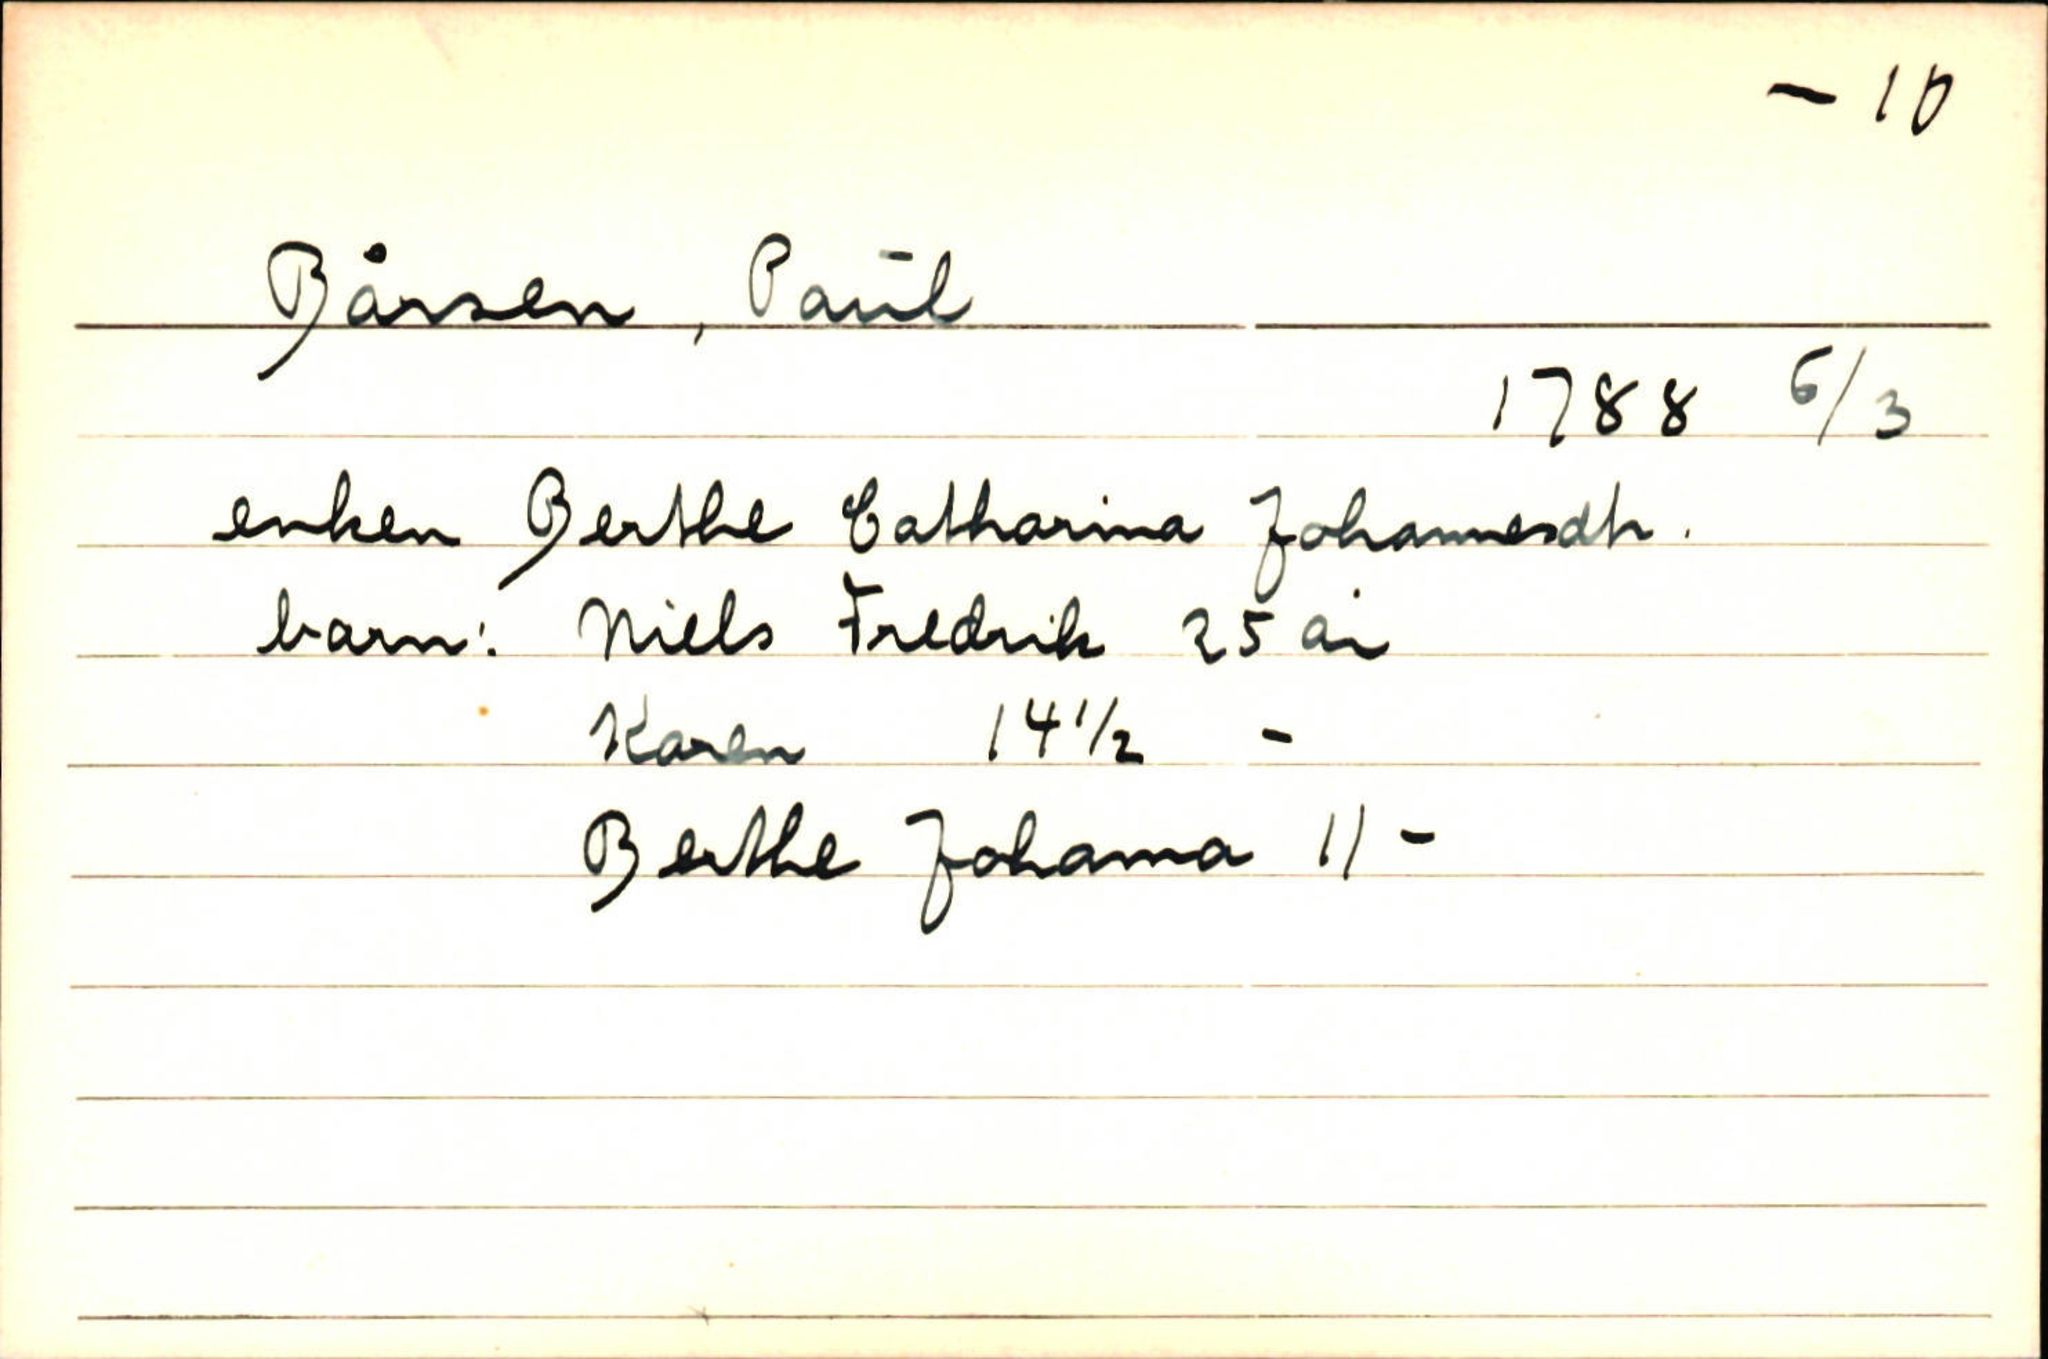 - 10
Bårsen, Paul
1788 6/3
enken Berthe Catharina Johannesdtr.
barn: Niels Fredrik 25 år
Karen 14 1/2 -
Berthe Johanna 11 -